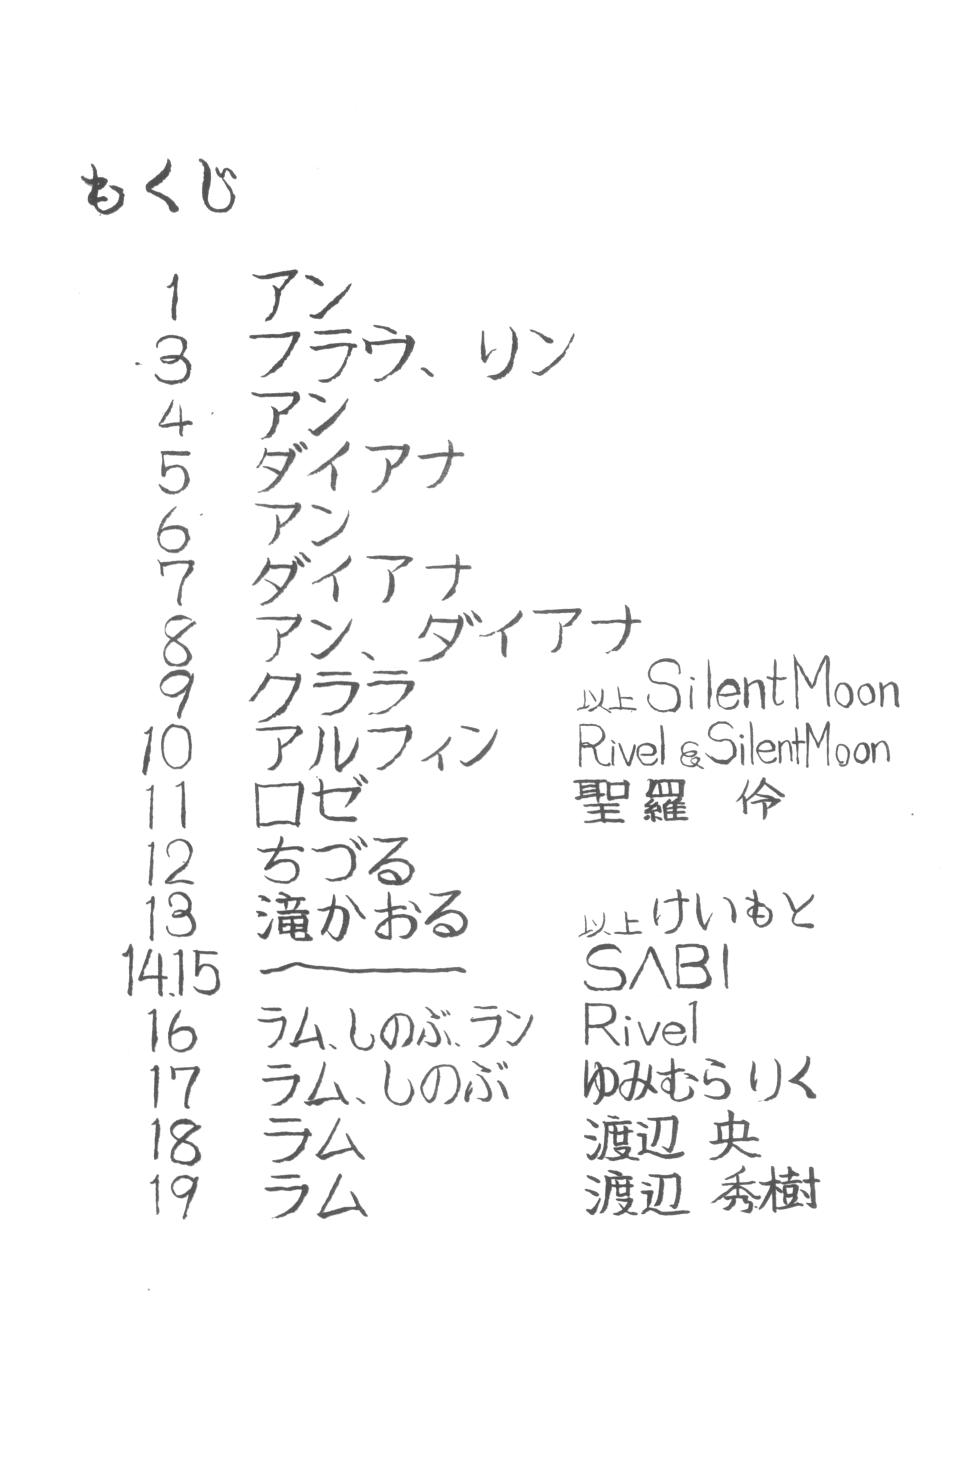 もくじ
1 アン
3 フラウ、リン
4 アン
5 ダイアナ
6 アン
7 ダイアナ
8 アン、ダイアナ
9 クララ 以上 SilentMoon
10 アルフィン Rivel & SilentMoon
11 ロゼ 聖羅 伶
12 ちづる
13 滝かおる 以上 けいもと
14.15 ーーー SABI
16 ラム、しのぶ、ラン Rivel
17 ラム、しのぶ ゆみむらりく
18 ラム 渡辺 央
19 ラム 渡辺 秀樹